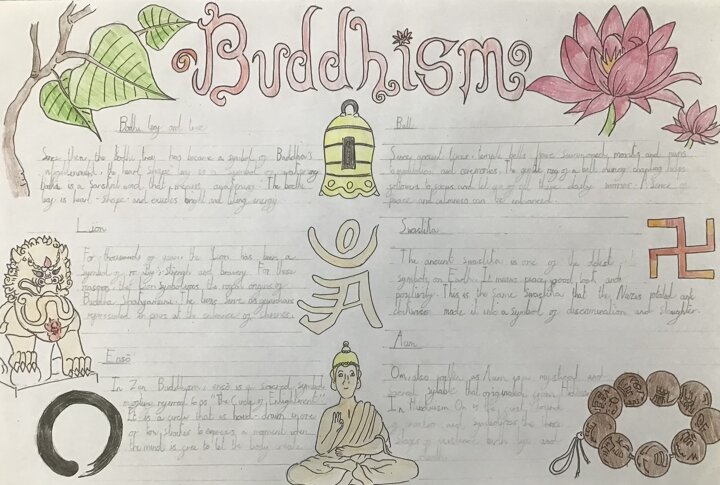 Buddhism
Bodhi leaf and tree
Since then, the Bodhi tree has become a symbol of Buddha's
enlightenment. The heart shape leaf is a symbol of
is a Sanskrit word that
leaf is heart shape and
Lion
For thousands of years the Lion has been a
symbol of strength and bravery. For these
reasons, the Lion symbolizes the royal origins of
Buddha Shakyamuni. The lions serve as guardians
represented in pairs at the entrance of shrines.
Ensō
In Zen Buddhism, ensō is a sacred symbol
"The Circle of Enlightenment"
It is a circle that is hand-drawn in one
or two strokes to express a moment when
the mind is free to let the body create
Bell
Since ancient times, temple bells have summoned monks and nuns
to meditation and ceremonies. The gentle ring of a bell during chanting helps
followers to focus and let go of all their daily worries. A sense of
peace and calmness can be enhanced.
Swastika
The ancient swastika is one of the oldest
symbols on Earth. It means peace, good luck and
This is the same swastika that the Nazis
made it into a symbol of discrimination and slaughter.
Aum
Om, also written as Aum, is a mystical and
sacred syllable that originated from Hinduism
In Hinduism Om is the first sound
of creation and symbolizes the three
stages of existence: birth, life and
death.